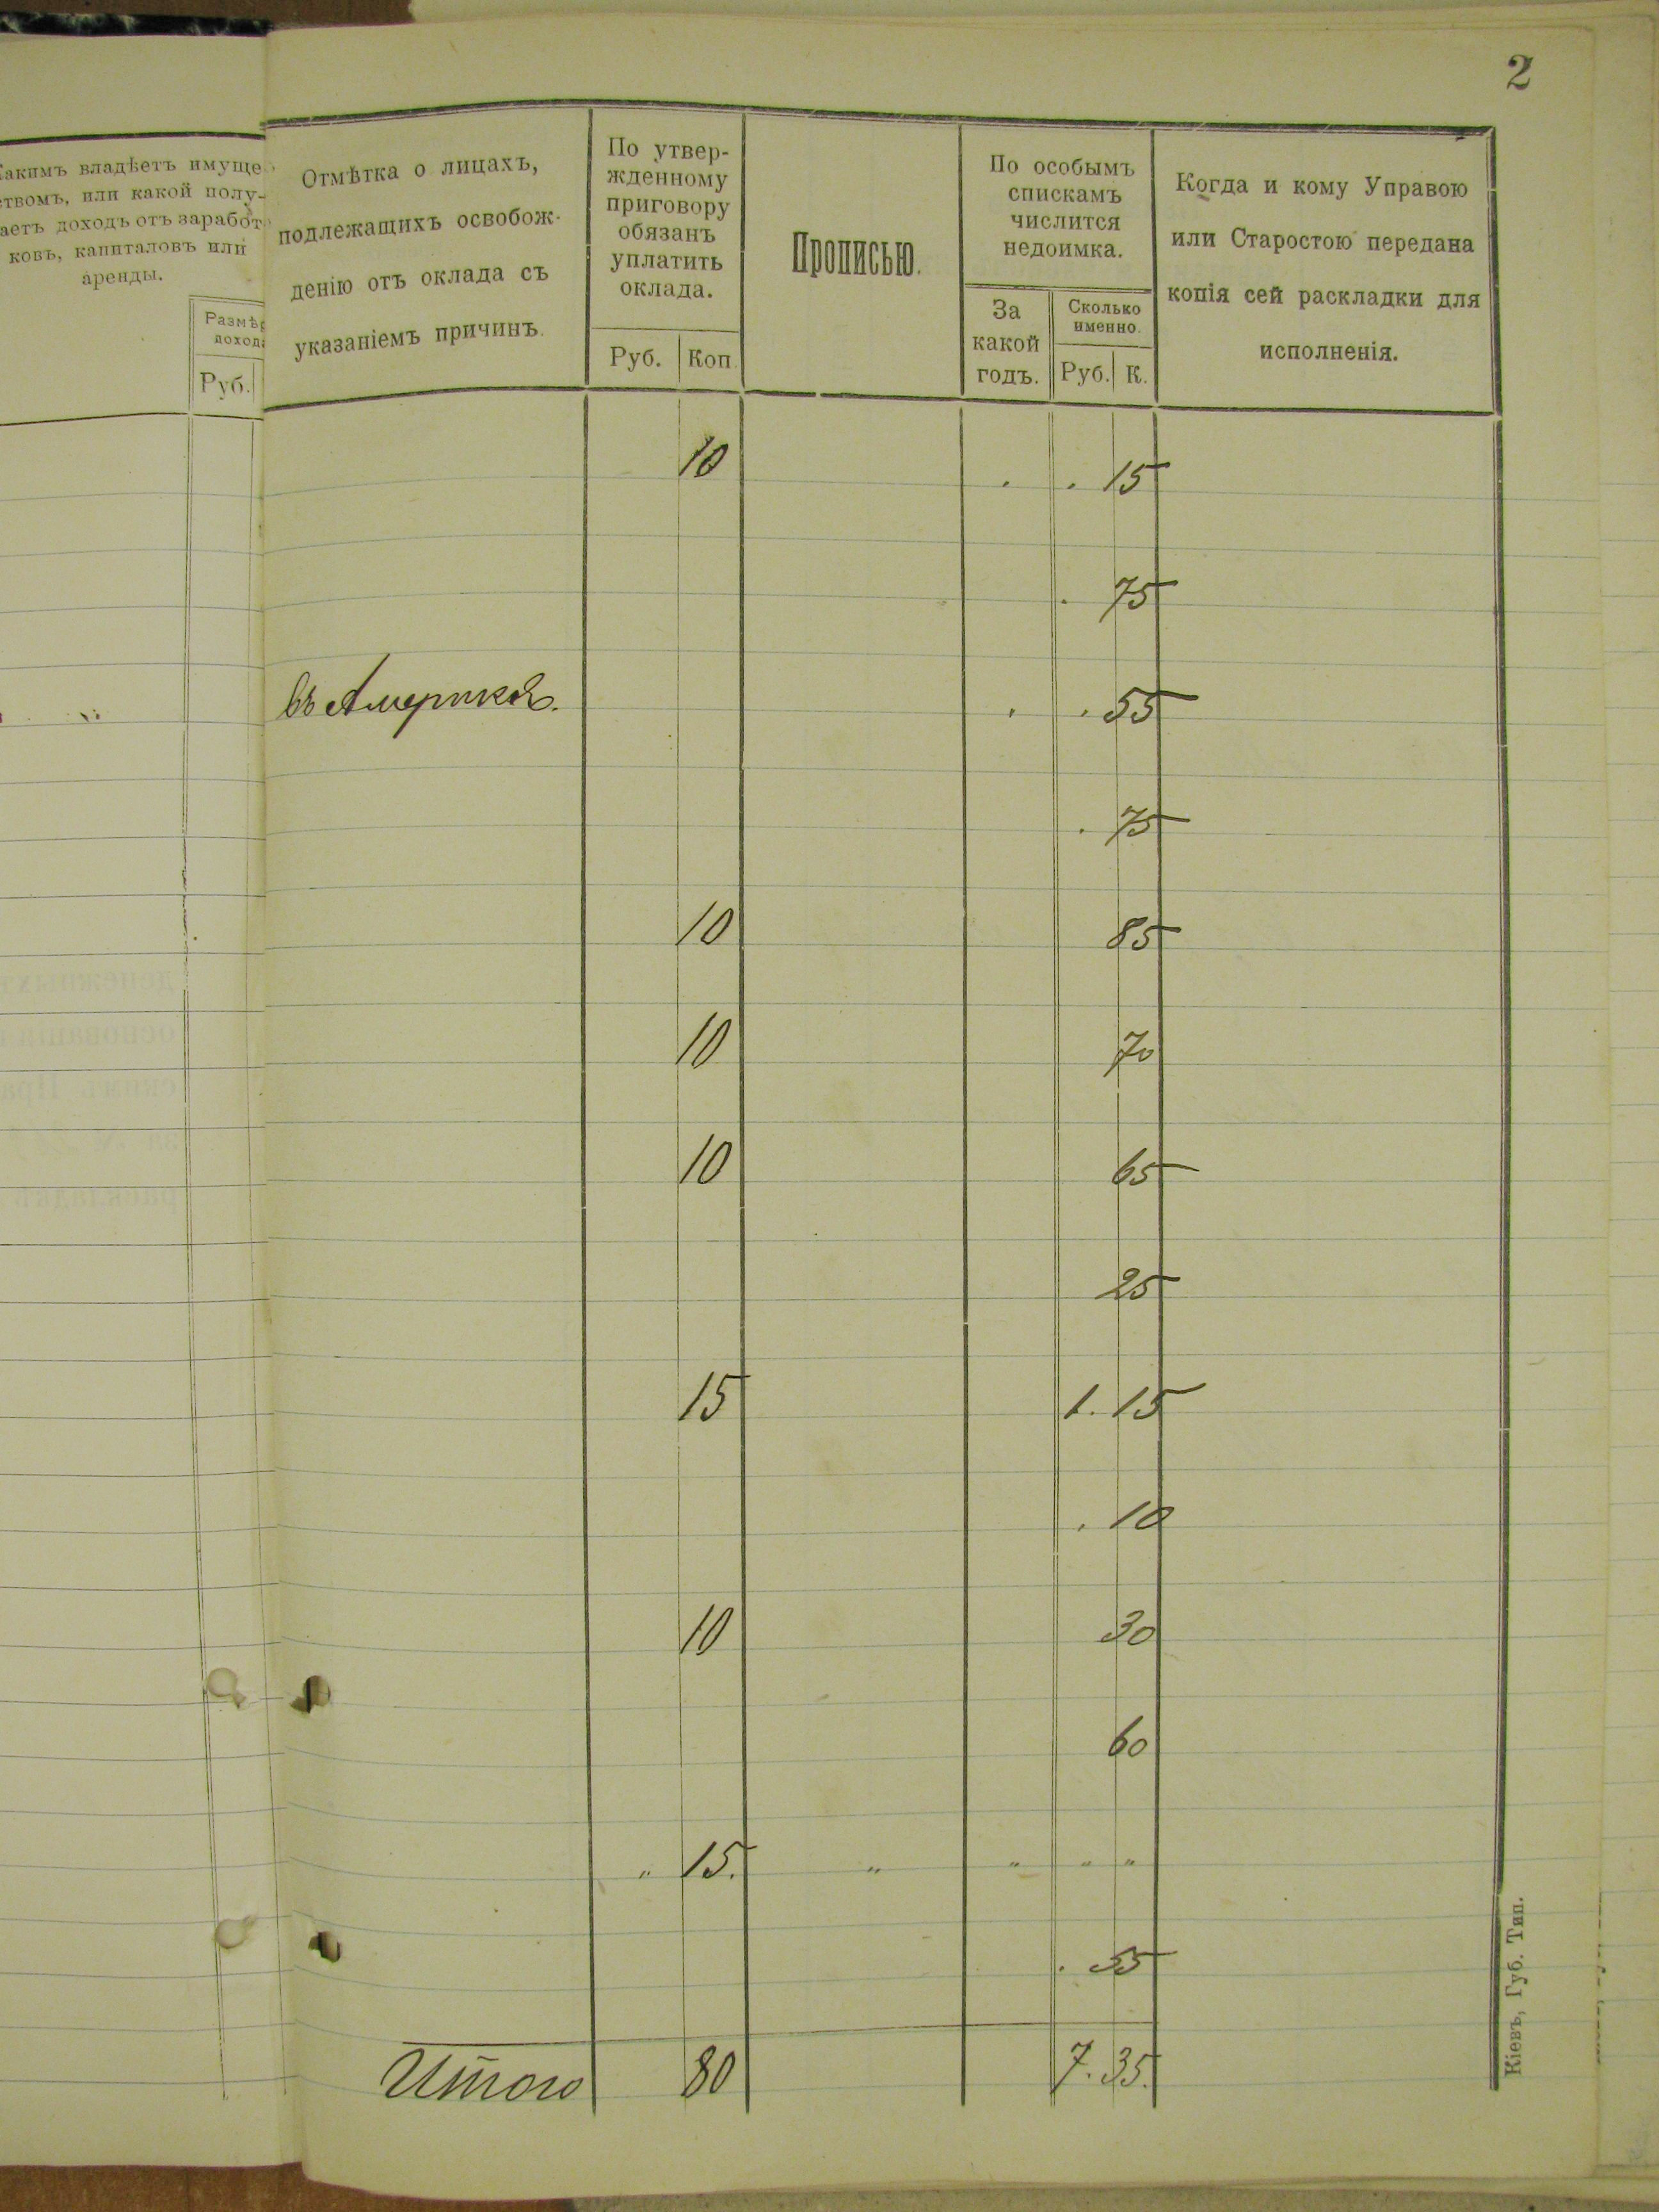 2
Какимъ владѣетъ имуще-
ствомъ, или какой полу-
чаетъ доходъ отъ заработ-
ковъ, капиталовъ или
аренды.
Размѣръ
дохода
Руб.
Отмѣтка о лицахъ,
подлежащихъ освобож-
денію отъ оклада съ
указаніемъ причинъ.
По утвер-
жденному
приговору
обязанъ
уплатить
оклада.
Руб. Коп.
Прописью.
По особымъ
спискамъ
числится
недоимка.
За
какой
годъ.
Сколько
именно.
Руб. К.
Когда и кому Управою
или Старостою передана
копія сей раскладки для
исполненія.
10 . . 15
. 75
въ Америкѣ. . . 55
. 75
10 85
10 70
10 65
25
15 1. 15
. 10
10 30
60
„ 15. „ „ „ „
. 55
Итого 80 7. 35.
Кіевъ, Губ. Тип.